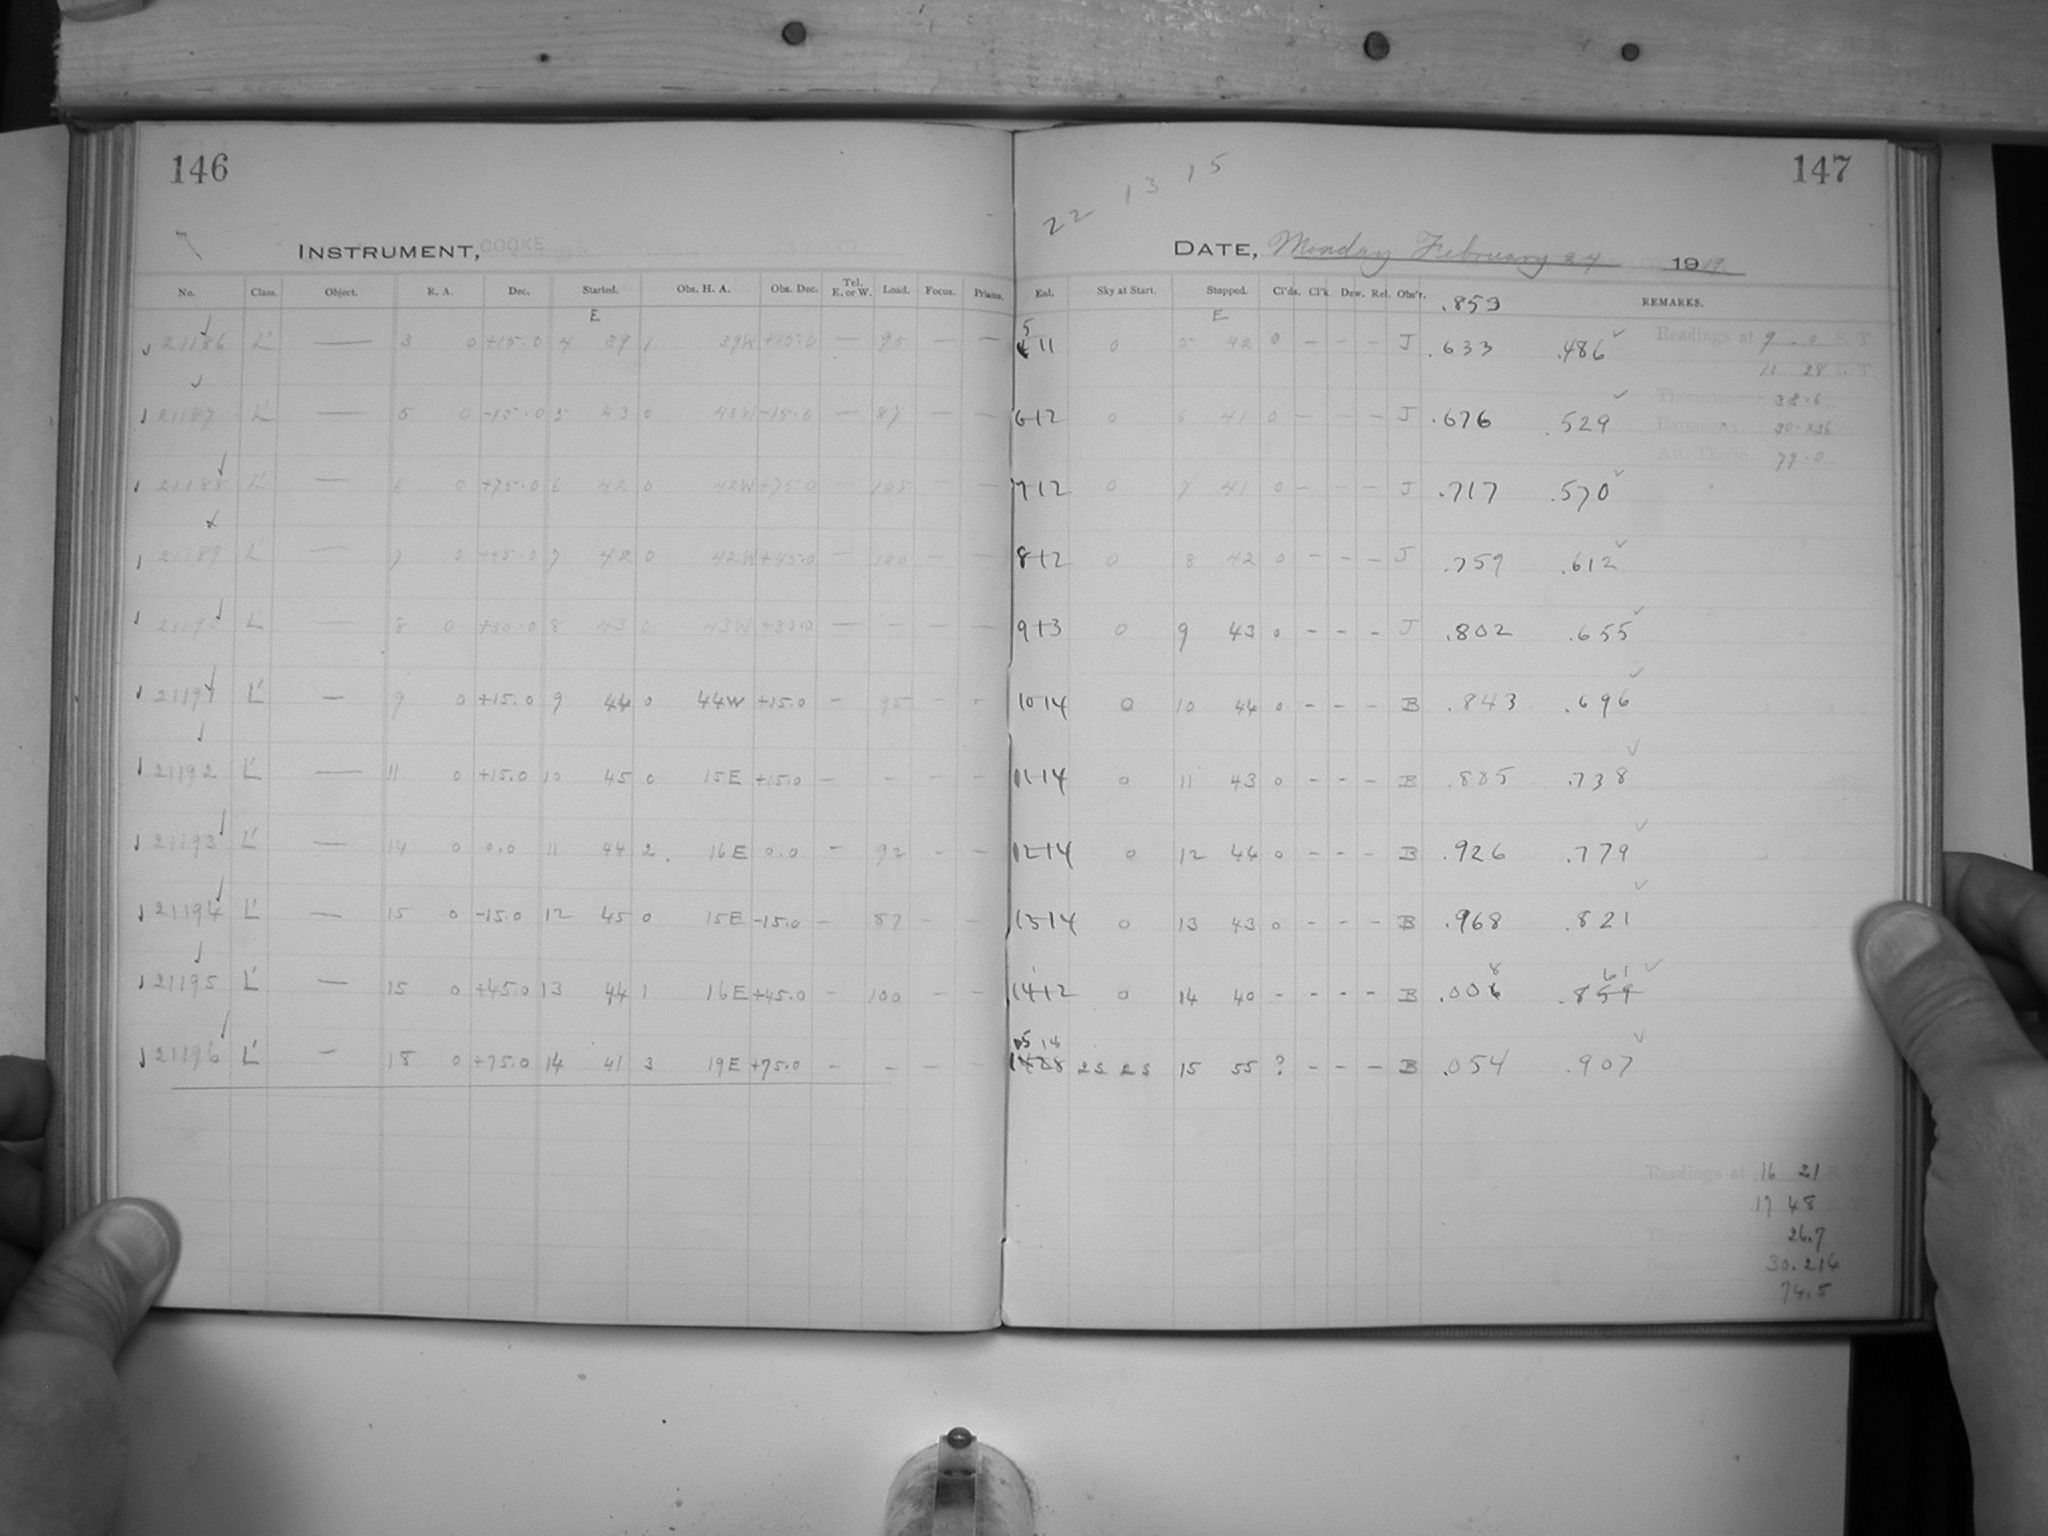 146
INSTRUMENT, COOKE
No. Class. Object. R. A. Dec. Started. Obs. H. A. Obs. Dec. Tel. E. or W. Load. Focus. Prisms.
E
21186 L' — 3 0 +15.0 4 39 1 39W +15.0 — 95 — —
21187 L' — 5 0 -15.0 5 43 0 43W -15.0 — 87 — —
21188 L' — 6 0 +75.0 6 42 0 42W +75.0 — 108 — —
21189 L' — 7 0 +45.0 7 42 0 42W +45.0 — 100 — —
21190 L — 8 0 +30.0 8 43 0 43W +30.0 — — — —
21191 L' — 9 0 +15.0 9 44 0 44W +15.0 - 95 - -
21192 L' — 11 0 +15.0 10 45 0 15E +15.0 - - - -
21193 L' — 14 0 0.0 11 44 2. 16E 0.0 - 92 - -
21194 L' — 15 0 -15.0 12 45 0 15E -15.0 - 87 - -
21195 L' — 15 0 +45.0 13 44 1 16E +45.0 - 100 - -
21196 L' — 18 0 +75.0 14 41 3 19E +75.0 - - - -
147
22 13 15
DATE, Monday February 24 1919
Eal. Sky at Start. Stopped. Cl'ds. Cl'k. Dew. Rel. Obs'r. .859 REMARKS.
E
5 11 0 5 42 0 - - - J .633 .486 ✓ Readings at 9 . 0 S. T.
11 28 T.
6 12 0 6 41 0 - - - J .676 .529 ✓
28.6
30.236
Att. Therm. 77.0
7 12 0 7 41 0 - - - J .717 .570 ✓
8 12 0 8 42 0 - - - J .759 .612 ✓
9 13 0 9 43 0 - - - J .802 .655 ✓
10 14 0 10 44 0 - - - B .843 .696 ✓
11 14 0 11 43 0 - - - B .885 .738 ✓
12 14 0 12 44 0 - - - B .926 .779 ✓
13 14 0 13 43 0 - - - B .968 .821 ✓
8 61 ✓
14 12 0 14 40 - - - - B .006 .859
15 18
2S 2S 15 55 ? - - - B .054 .907 ✓
Readings at 16 21
17 48
26.7
30.214
74.5